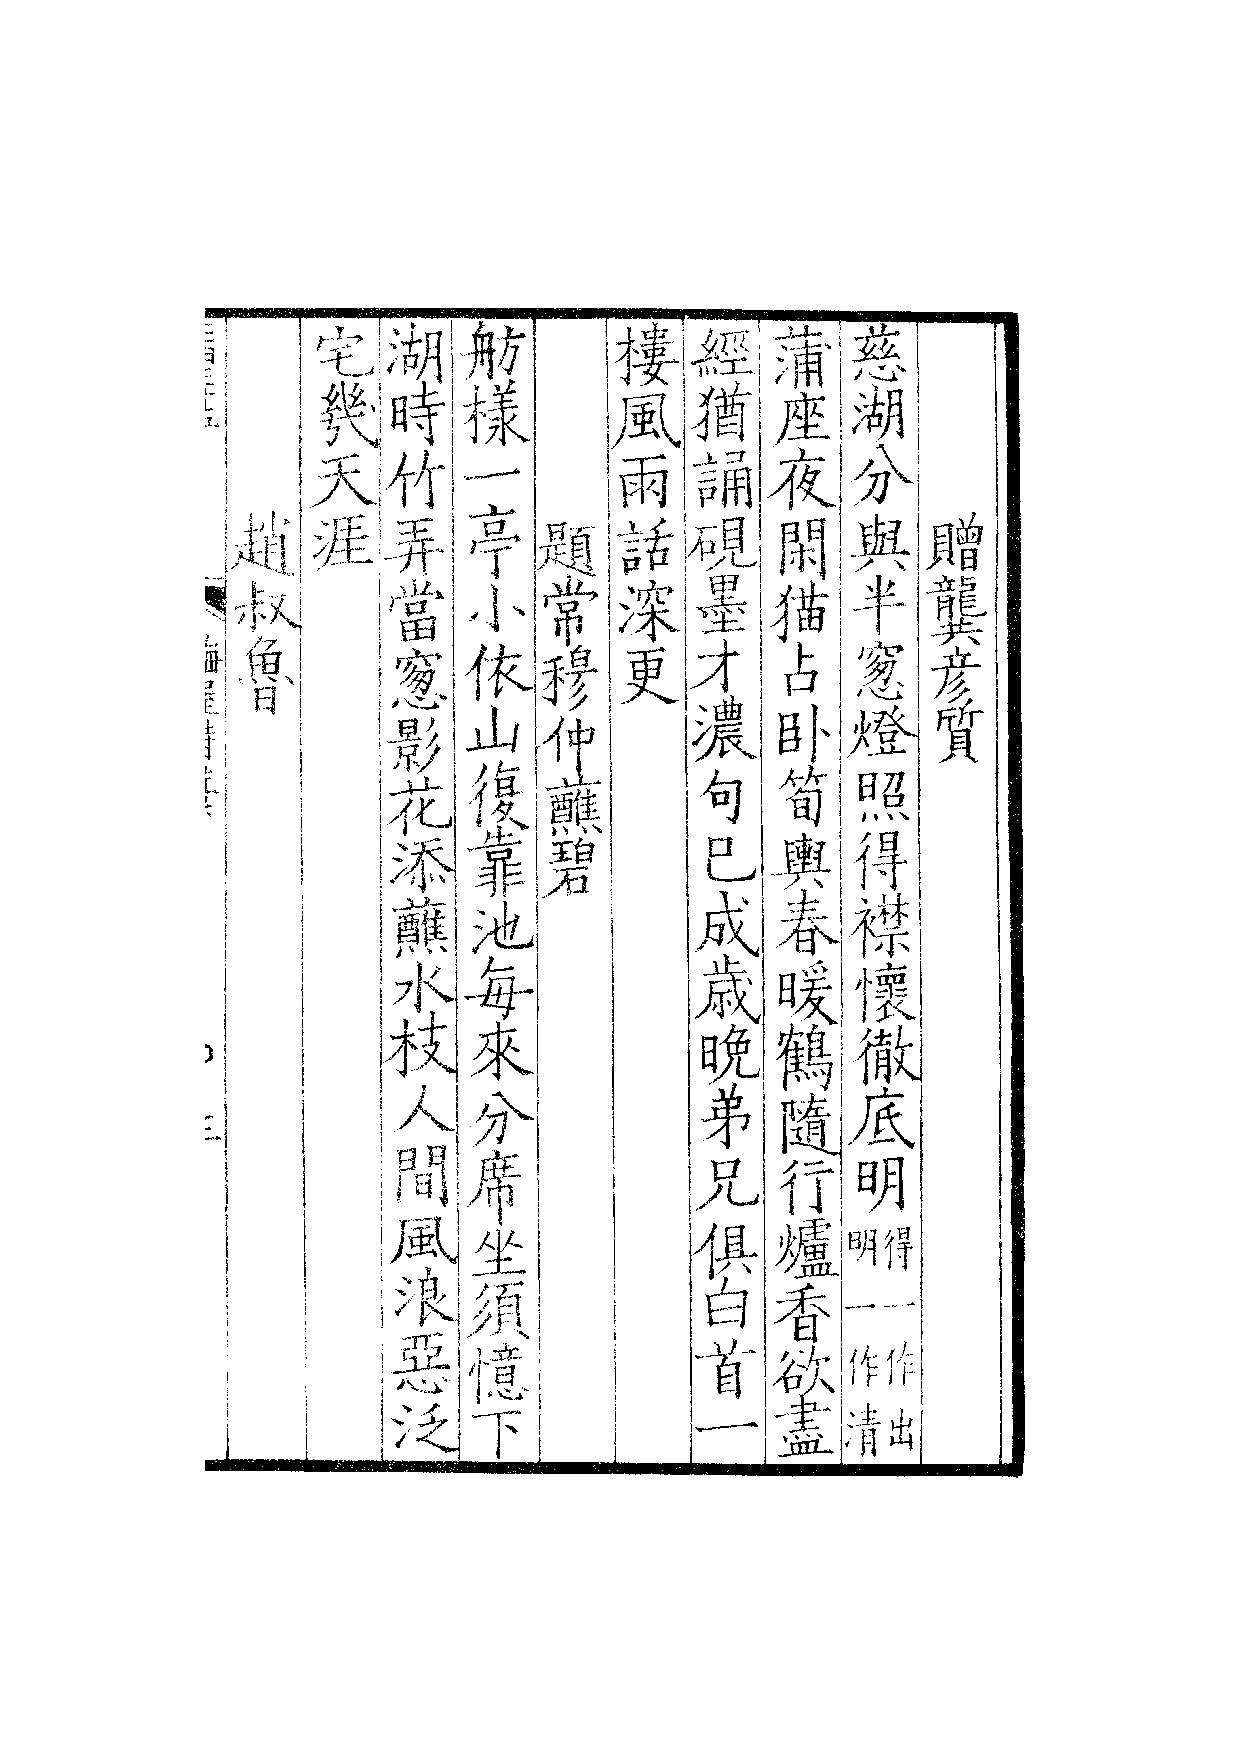 贈龔彥質
慈湖分與半窻燈照得襟懷徹底明得一作出明一作清
蒲座夜閑猫占卧筍輿春暖鶴隨行爐香欲盡
經猶誦硯墨才濃句已成歲晚弟兄俱白首一
樓風雨話深更
題常穆仲蘸碧
舫樣一亭小依山復靠池每來分席坐須憶下
湖時竹弄當窻影花添蘸水枝人間風浪惡泛
宅幾天涯
趙叔魯